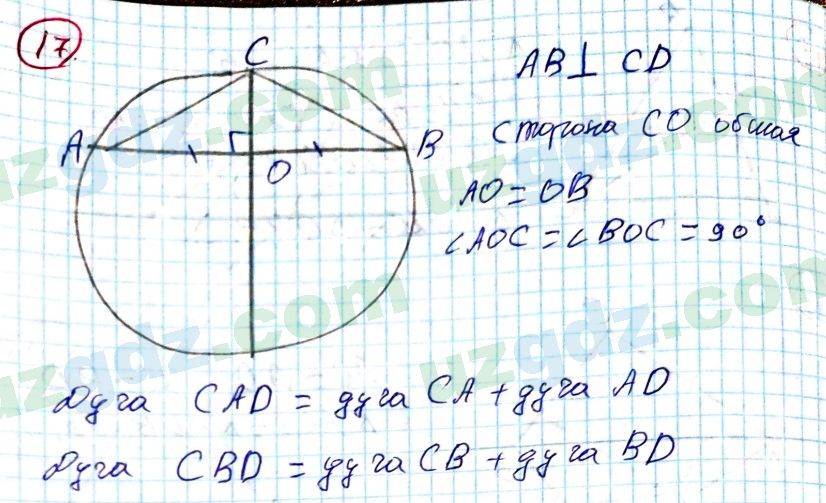 17
C
AB⊥ CD
Сторона CO общая
A
B
O
AO = OB
∠AOC = ∠BOC = 90°
Дуга CAD = дуга CA + дуга AD
Дуга CBD = дуга CB + дуга BD
uzgdz.com
uzgdz.com
uzgdz.com
uzgdz.com